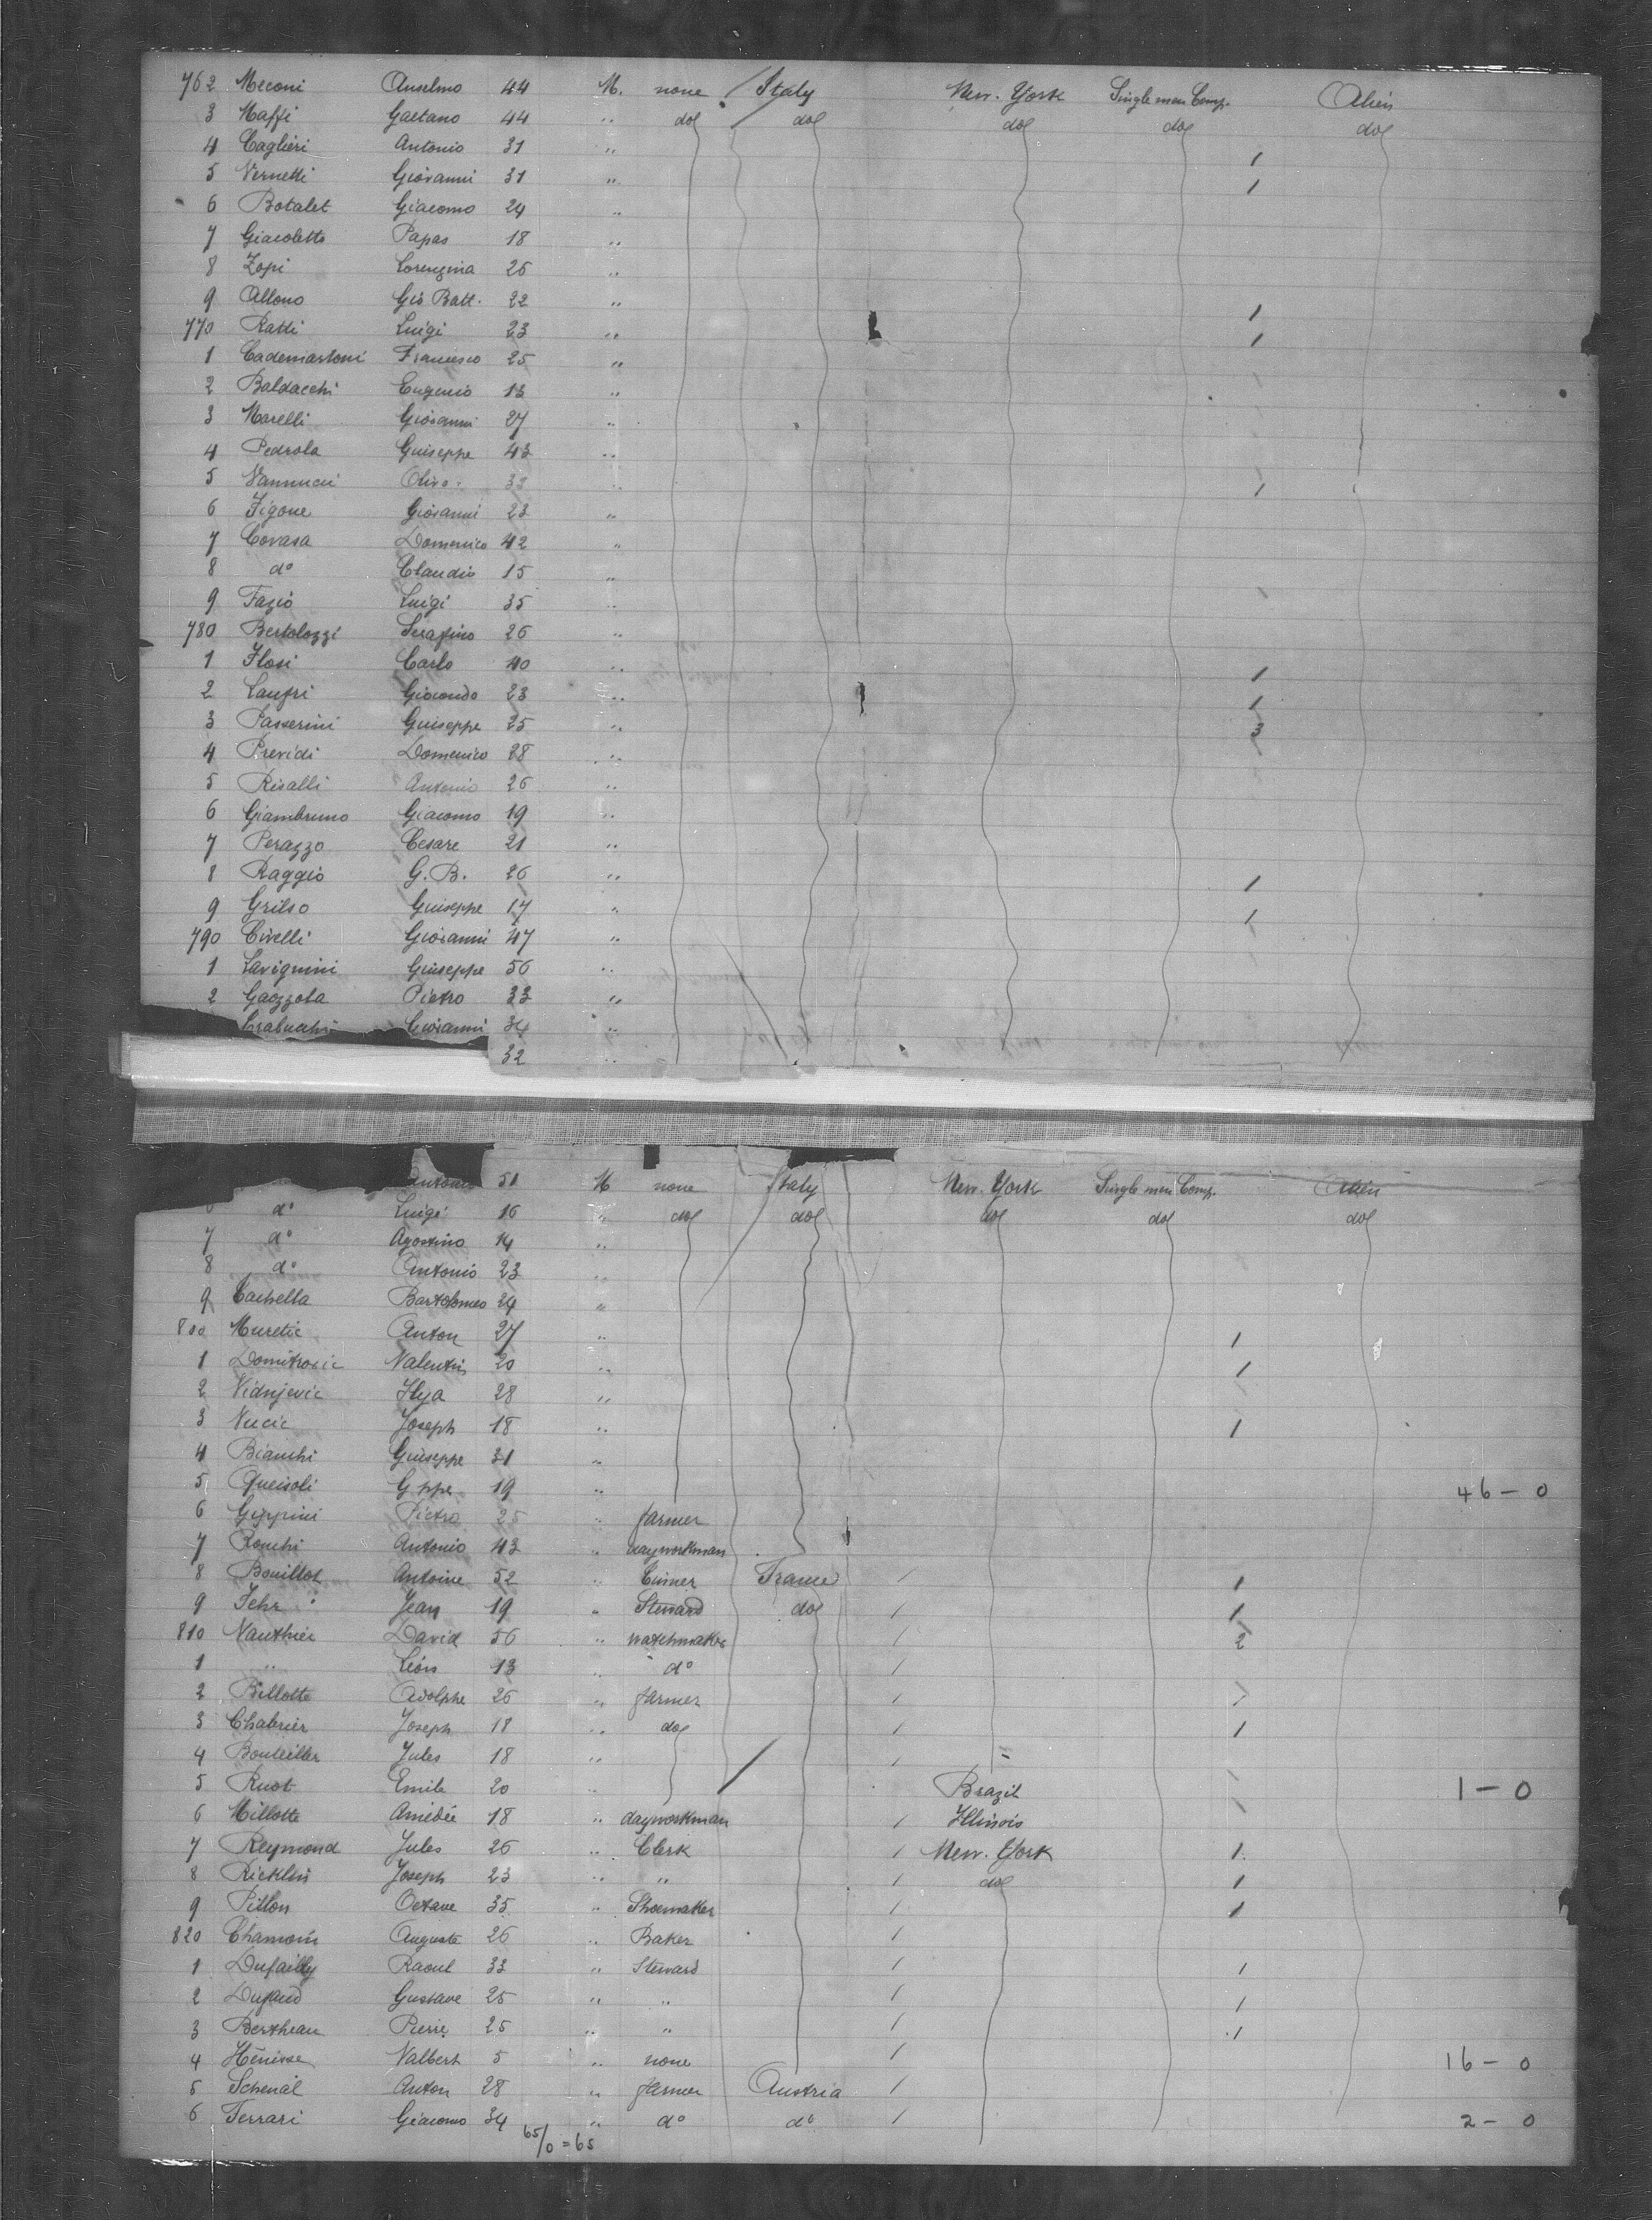 762 Meconi Anselmo 44 M. none Italy New. York Single men Comp. Alien
3 Maffi Gaetano 44 " do do do do do
4 Caglieri Antonio 31 " 1
5 Vernetti Giovanni 31 " 1
6 Botalet Giacomo 24 "
7 Giacoletto Papas 18 "
8 Zopi Lorenzina 26 "
9 Allono Gio Batt. 22 " 1
770 Ratti Luigi 23 " 1
1 Cademartoni Francesco 25 "
2 Baldacchi Eugenio 13 "
3 Marelli Giovanni 27 "
4 Pedrola Guiseppe 43 "
5 Vannucci Olivo 33 " 1
6 Figone Giovanni 23 "
7 Covasa Domenico 42 "
8 do Claudio 15 "
9 Fazio Luigi 35 "
780 Bertolozzi Serafino 26 "
1 Flosi Carlo 40 " 1
2 Giocondo 23 " 1
3 Passerini Guiseppe 25 " 3
4 Previdi Domenico 28 "
5 Risalli Antonio 26 "
6 Giambruno Giacomo 19 "
7 Perazzo Cesare 21 "
8 Raggio G. B. 26 " 1
9 Grilso Guiseppe 17 " 1
790 Civelli Giovanni 47 "
1 Lavignini Guiseppe 56 "
2 Gaozzola Pietro 33 "
Crabucchi Giovanni 34 "
32 "
Antonio 51 M none Italy New. York Single men Comp. Alien
do Luigi 16 " do do do do do
7 do Agostino 14 "
8 do Antonio 23 "
9 Cachella Bartolomeo 24 "
800 Muretic Anton 27 " 1
1 Domitrovic Valentin 20 " 1
2 Vidnjevic Ilya 28 "
3 Vucic Joseph 18 " 1
4 Bianchi Guiseppe 31 "
5 Queisoli G ppe 19 " 46 - 0
6 Geppini Pietro 25 " farmer
7 Ronchi Antonio 43 " dayworkman
8 Bouillot Antoine 52 " France 1
9 Fehr Jean 19 " Steward do 1
810 Vauthier David 56 " watchmaker 2
1 " Léon 13 " do
2 Billotte Adolphe 26 " farmer
3 Chabrier Joseph 18 " do 1
4 Bouteiller Jules 18 "
5 Ruot Emile 20 " Brazil 1 - 0
6 Millotte Amédée 18 " dayworkman Illinois
7 Reymond Jules 26 " Clerk New. York 1
8 Ricklin Joseph 23 " " do 1
9 Pillon Octave 35 " Shoemaker 1
820 Chamoin Auguste 26 " Baker
1 Dufailly Raoul 33 " Steward 1
2 Dufaud Gustave 25 " " 1
3 Bertheau Pierre 25 " " 1
4 Hénisse Valbert 5 " none 16 - 0
5 Schenal Anton 28 " farmer Austria
6 Ferrari Giacomo 34 " do do 2 - 0
65/0 = 65